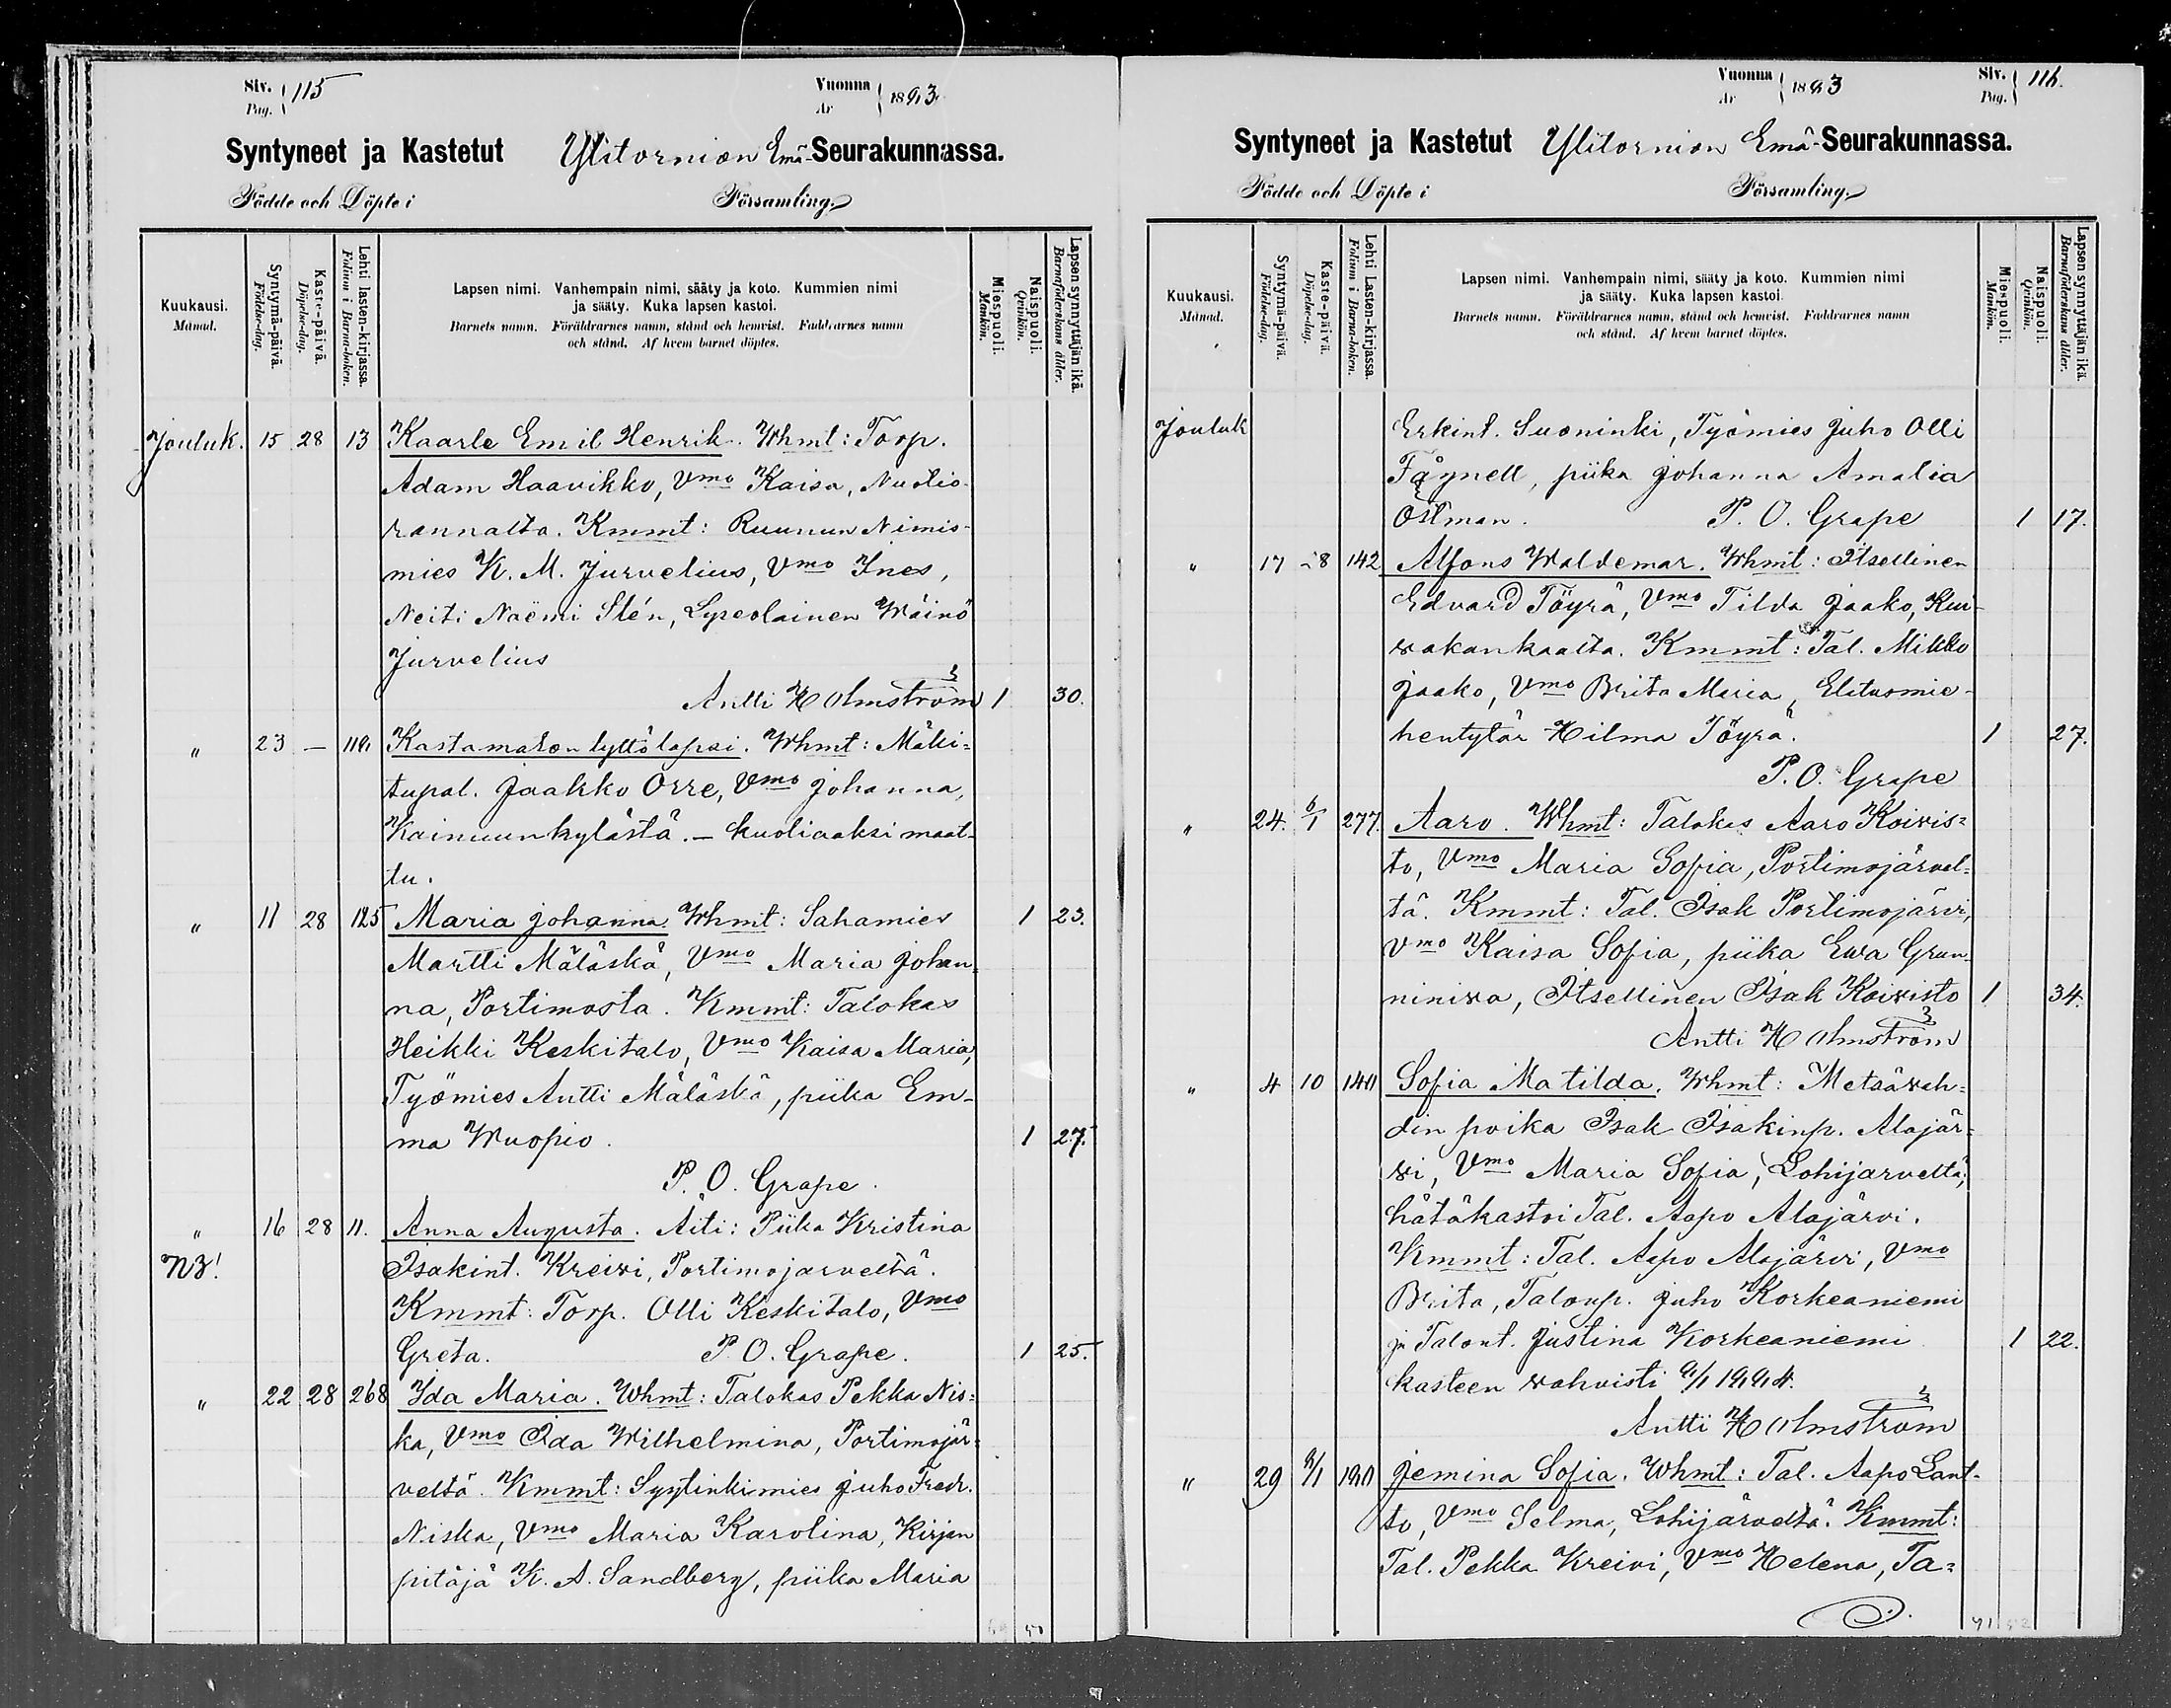 Siv. 115 Vuonna 1893.
Pag. År
Syntyneet ja Kastetut Ylitornion Emä-Seurakunnassa.
Födde och Döpte i Församling.
Kuukausi. Månad.
Syntymä-päivä. Födelse-dag.
Kaste-päivä. Döpelse-dag.
Lehti lasten-kirjassa. Folium i Barna-boken.
Lapsen nimi. Vanhempain nimi, sääty ja koto. Kummien nimi
ja sääty. Kuka lapsen kastoi.
Barnets namn. Föräldrarnes namn, stånd och hemvist. Faddrarnes namn
och stånd. Af hvem barnet döptes.
Miespuoli. Mankön.
Naispuoli. Qvinkön.
Lapsen synnyttäjän ikä. Barnaföderskans ålder.
Jouluk. 15 28 13 Kaarle Emil Henrik. Whmt: Torp.
Adam Haavikko, Vmo Kaisa, Nuolio-
rannalta. Kmmt: Ruunun Nimis-
mies K. M. Jurvelius, Vmo Ines,
Neiti Naëmi Stén, Lyseolainen Wäinö
Jurvelius
Antti Holmström 1 30.
" 23 — 119 Kastamaton tyttölapsi. Whmt: Mäki=
tupal. Jaakko Orre, Vmo Johanna,
Kainuunkylästä. — kuoliaaksi maat-
tu.
" 11 28 125 Maria Johanna. Whmt: Sahamies 1 23.
Martti Mäläskä, Vmo Maria Johan-
na, Portimosta. Kmmt: Talokas
Heikki Keskitalo, Vmo Kaisa Maria,
Työmies Antti Mäläskä, piika Em-
ma Wuopio. 1 27.
P. O. Grape.
" 16 28 11. Anna Augusta. Äiti: Piika Kristina
NB! Isakint. Kreivi, Portimojarveltä.
Kmmt: Torp. Olli Keskitalo, Vmo
Greta. P. O. Grape. 1 25.
" 22 28 268 Ida Maria. Whmt: Talokas Pekka Nis=
ka, Vmo Ida Wilhelmina, Portimojär=
veltä. Kmmt: Syytinkimies Juho Fredr.
Niska, Vmo Maria Karolina, Kirjan
pitäjä K. A. Sandberg, piika Maria
Vuonna 1893 Siv. 116.
År Pag.
Syntyneet ja Kastetut Ylitornion Emä-Seurakunnassa.
Födde och Döpte i Församling.
Kuukausi. Månad.
Syntymä-päivä. Födelse-dag.
Kaste-päivä. Döpelse-dag.
Lehti Lasten-kirjassa. Folium i Barna-boken.
Lapsen nimi. Vanhempain nimi, sääty ja koto. Kummien nimi
ja sääty. Kuka lapsen kastoi.
Barnets namn. Föräldrarnes namn, stånd och hemvist. Faddrarnes namn
och stånd. Af hvem barnet döptes.
Miespuoli. Mankön.
Naispuoli. Qvinkön.
Lapsen synnyttäjän ikä. Barnaföderskans ålder.
Jouluk Erkint. Suoninki, Työmies Juho Olli
piika Johanna Amalia
Östman. P. O. Grape 1 17.
" 17 28 142 Alfons Waldemar. Whmt: Itsellinen
Edvard Töyrä, Vmo Tilda Jaako, Kui-
vakankaalta. Kmmt: Tal. Mikko
Jaako, Vmo Brita Maria, Elatusmie-
hentytär Hilma Töyrä. 1 27.
P. O. Grape
" 24. 6/1 277. Aaro. Whmt: Talokas Aaro Koivis=
to, Vmo Maria Sofia, Portimojärvel=
tä. Kmmt: Tal. Isak Portimojärvi,
Vmo Kaisa Sofia, piika Ewa Grun-
niniva, Itsellinen Isak Koivisto 1 34.
Antti Holmström
" 4 10 Sofia Matilda. Whmt: Metsävah=
din poika Isak Isakinp. Alajär=
vi, Vmo Maria Sofia, Lohijarveltä;
hätäkastoi Tal. Aapo Alajärvi.
Kmmt: Tal. Aapo Alajärvi, Vmo
Brita, Talonp. Juho Korkeaniemi
ja Talont. Justina Korkeaniemi 1 22.
kasteen vahvisti 9/1 1894.
Antti Holmström
" 29 Jemina Sofia. Whmt: Tal. Aapo Lant-
to, Vmo Selma, Lohijärveltä. Kmmt:
Tal. Pekka Kreivi, Vmo Helena, Ta=